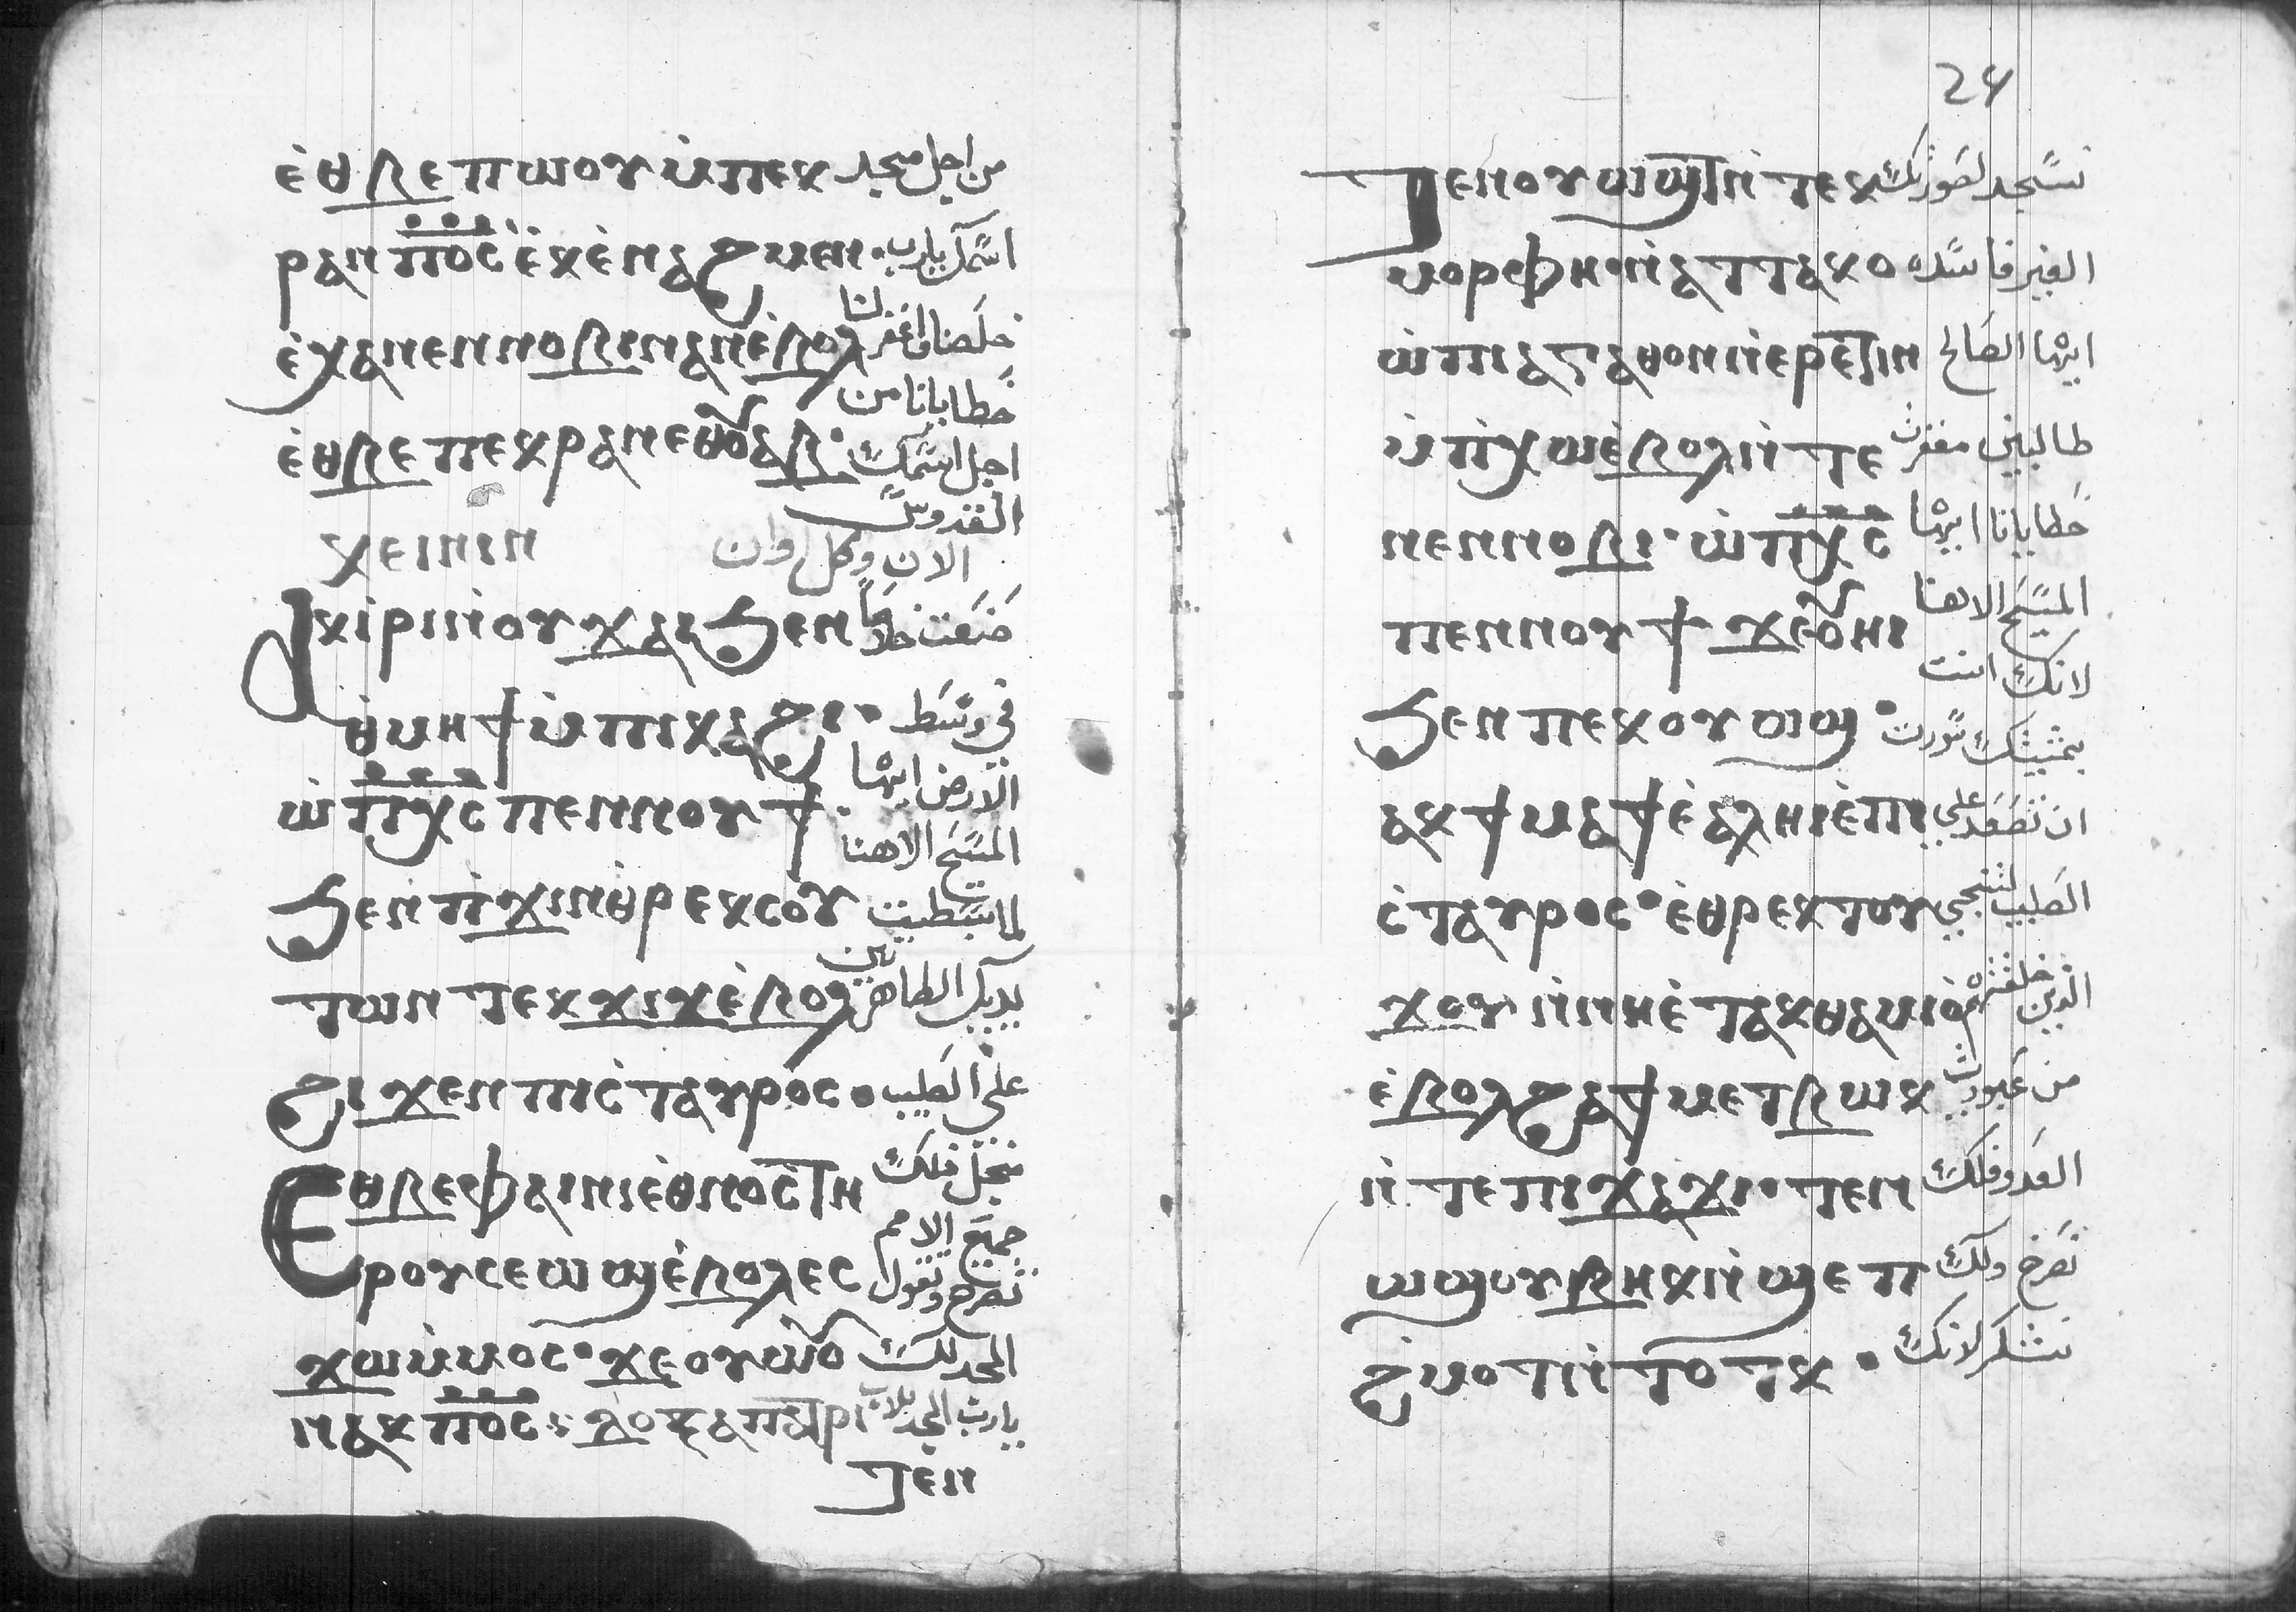 ⲉ̀ⲑⲃⲉⲡⲱⲟⲩ ⲙ̀ⲡⲉⲕ من اجل مجد
ⲣⲁⲛ ⲡ̅ⲟ̅ⲥ̅ ⲉ̀ⲕⲉ̀ⲛⲁϩⲙⲉⲛ· اسمك يارب
ⲉ̀ⲭⲁⲛⲉⲛⲛⲟⲃⲓⲛⲁⲛⲉ̀ⲃⲟⲗ خلصنا واغفر لنا
خطايانا من
ⲉ̀ⲑⲃⲉ ⲡⲉⲕⲣⲁⲛⲉⲑⲟ̅ⲩⲁⲃ· اجل اسمك
القدوس
ⲭⲉⲓⲛⲓⲛ الان وكل اوان
Ⲁⲕⲓ̀ⲣⲓⲛ̀ⲟⲩϫⲁⲓϧⲉⲛ صنعت خلاصاً
ⲑ̀ⲙⲏϯⲙ̀ⲡⲓⲕⲁϩⲓ· في وسط
الارض ايها
ⲱ̀ ⲡ̅ⲭ̅ⲥ̅ ⲡⲉⲛⲛⲟⲩϯ· المسيح الاهنا
ϧⲉⲛⲡ̀ϫⲓⲛⲑ̀ⲣⲉⲕⲥⲟⲩ لما بسطت
ⲧⲱⲛ ⲧⲉⲕϫⲓϫⲉ̀ⲃⲟⲗ يديك الطاهرتين
ϩⲓϫⲉⲛⲡⲓⲥ̀ⲧⲁⲩⲣⲟⲥ· على الصليب
Ⲉⲑⲃⲉⲫⲁⲓⲛⲓⲉ̀ⲑⲛⲟⲥⲧⲏ فلك
جميع الامم
ⲣⲟⲩⲥⲉⲱϣⲉ̀ⲃⲟⲗⲉⲥ تصرخ وتقول
ϫⲱⲙ̀ⲙⲟⲥ· ϫⲉⲟⲩⲱ̀ⲟ المجد لك
ⲛⲁⲕ ⲡ̅ⲟ̅ⲥ̅: ⲇⲟⲝⲁⲡⲁⲧⲣⲓ يارب المجد للاب
ⲧⲉⲛ
24
Ⲧⲉⲛⲟⲩⲱϣⲧⲛ̀ ⲧⲉⲕ نسجد لصورتك
ⲙⲟⲣⲫⲏ·ⲛ̀ⲁⲧⲧⲁⲕⲟ الغير فاسده
ⲱ̀ⲡⲓⲁⲅⲁⲑⲟⲛⲛ̀ⲉⲣⲉ̀ⲧⲓⲛ ايها الصالح
ⲙ̀ⲡ̀ⲭⲱⲉ̀ⲃⲟⲗⲛ̀ ⲧⲉ طالبين مغفرت
ⲛⲉⲛⲛⲟⲃⲓ· ⲱ̀ ⲡ̅ⲭ̅ⲥ̅ خطايانا ايها
ⲡⲉⲛⲛⲟⲩϯ ϫⲉⲟ̅ⲏⲓ المسيح الاهنا
لانك انت
ϧⲉⲛ ⲡⲉⲕⲟⲩⲱϣ· بمشيتك سررت
ⲁⲕϯⲙⲁϯⲉ̀ⲁⲗⲏⲓⲉ̀ⲡⲓ ان تصعد علي
ⲥ̀ⲧⲁⲩⲣⲟⲥ· ⲉ̀ⲑⲣⲉⲕⲧⲟⲩ الصليب لتنجي
ϫⲟⲩ ⲛ̀ⲛⲏⲉ̀ⲧⲁⲕⲑⲁⲙⲓⲟ الذين خلقتهم
ⲉ̀ⲃⲟⲗϩⲁϯⲙⲉⲧⲃⲱⲕ من عبوديت
ⲛ̀ ⲧⲉ ⲡⲓϫⲁϫⲓ· ⲧⲉⲛ العدو فلك
ⲱϣⲟⲩⲃⲏⲕⲛ̀ϣⲉⲡ نصرخ ولك
ϩ̀ⲙⲟⲧⲛ̀ⲧⲟⲧⲕ· نشكر لانك